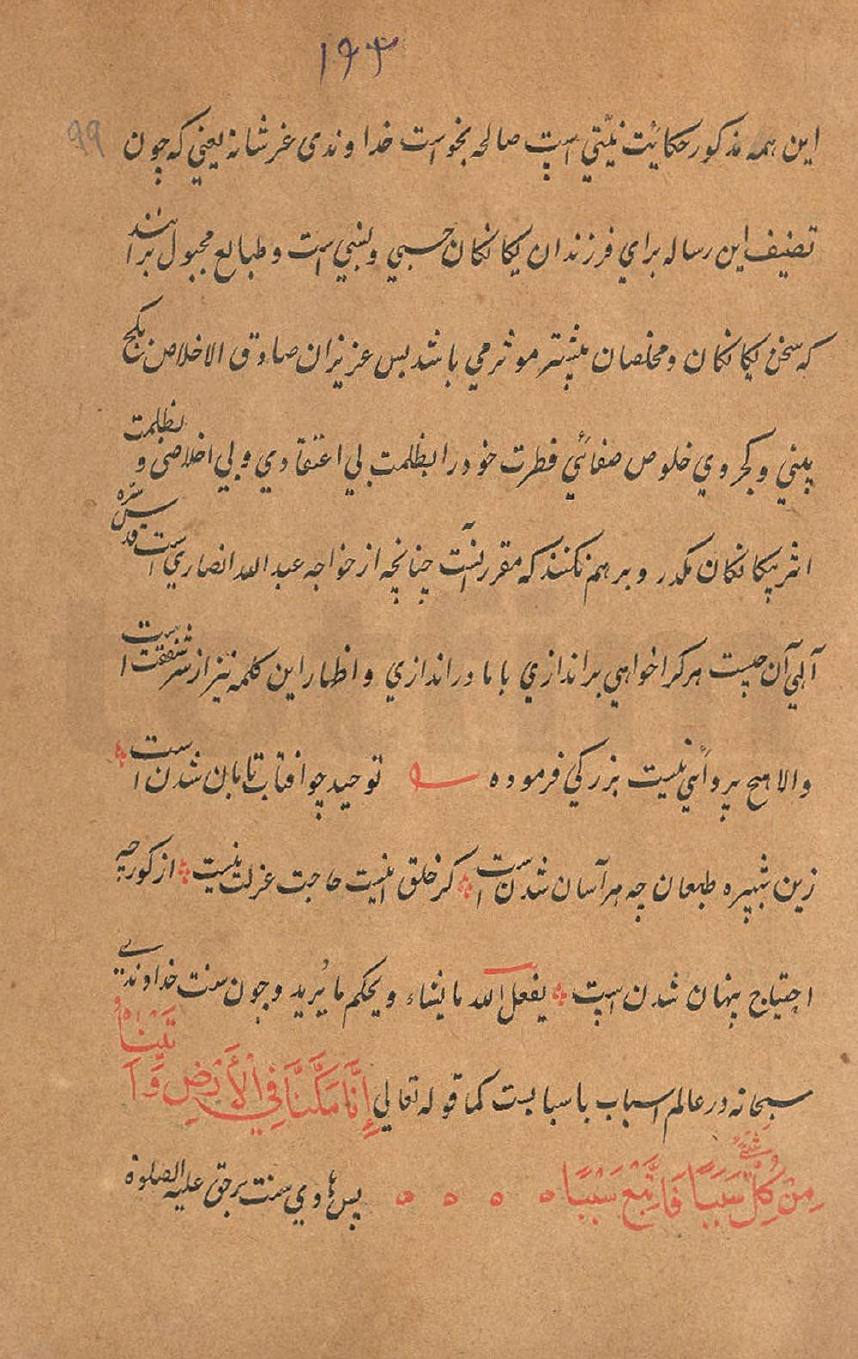 ۱۹۳
۹۹
این همه مذکور حکائت نیتی است صالحه بخواست خداوندی عز شانه یعنی که چون
تصنیف این رساله برای فرزندان یکانکان حسبی و نسبی است و طبایع مجبول براند
که سخن یکانکان و مخلصان بیشتر موثر می باشد بس عزیزان صادق الاخلاص بکج
بینی و کجروی خلوص صفائی فطرت خود را بظلمت بی اعتقادی و بی اخلاصی و بظلمت
اثر بیکانکان مکدر و برهم نکنند که مقرر است چنانچه از خواجه عبد الله انصاری است قدس سره
الهی آن چیست هر کرا خواهی براندازی با ما در اندازی و اظهار این کلمه نیز از سر شفقت است
والا هیچ پروائی نیست بزرکی فرموده توحید چو افتاب تابان شدن است
زین شبپره طبعان چه هراسان شدن است کر خلق نیست حاجت عزلت نیست از کور چه
احتیاج پنهان شدن است یفعل الله ما یشاء و یحکم ما یرید و چون سنت خداوندی
سبحانه در عالم اسباب باسبابست کما قوله تعالی إِنَّا مَكَّنَّا فِي الْأَرْضِ وَآتَيْنَاهُ
مِنْ كُلِّ شَيْءٍ سَبَبًا فَاتَّبَعَ سَبَبًا بس هادی سنت برحق علیه الصلوة